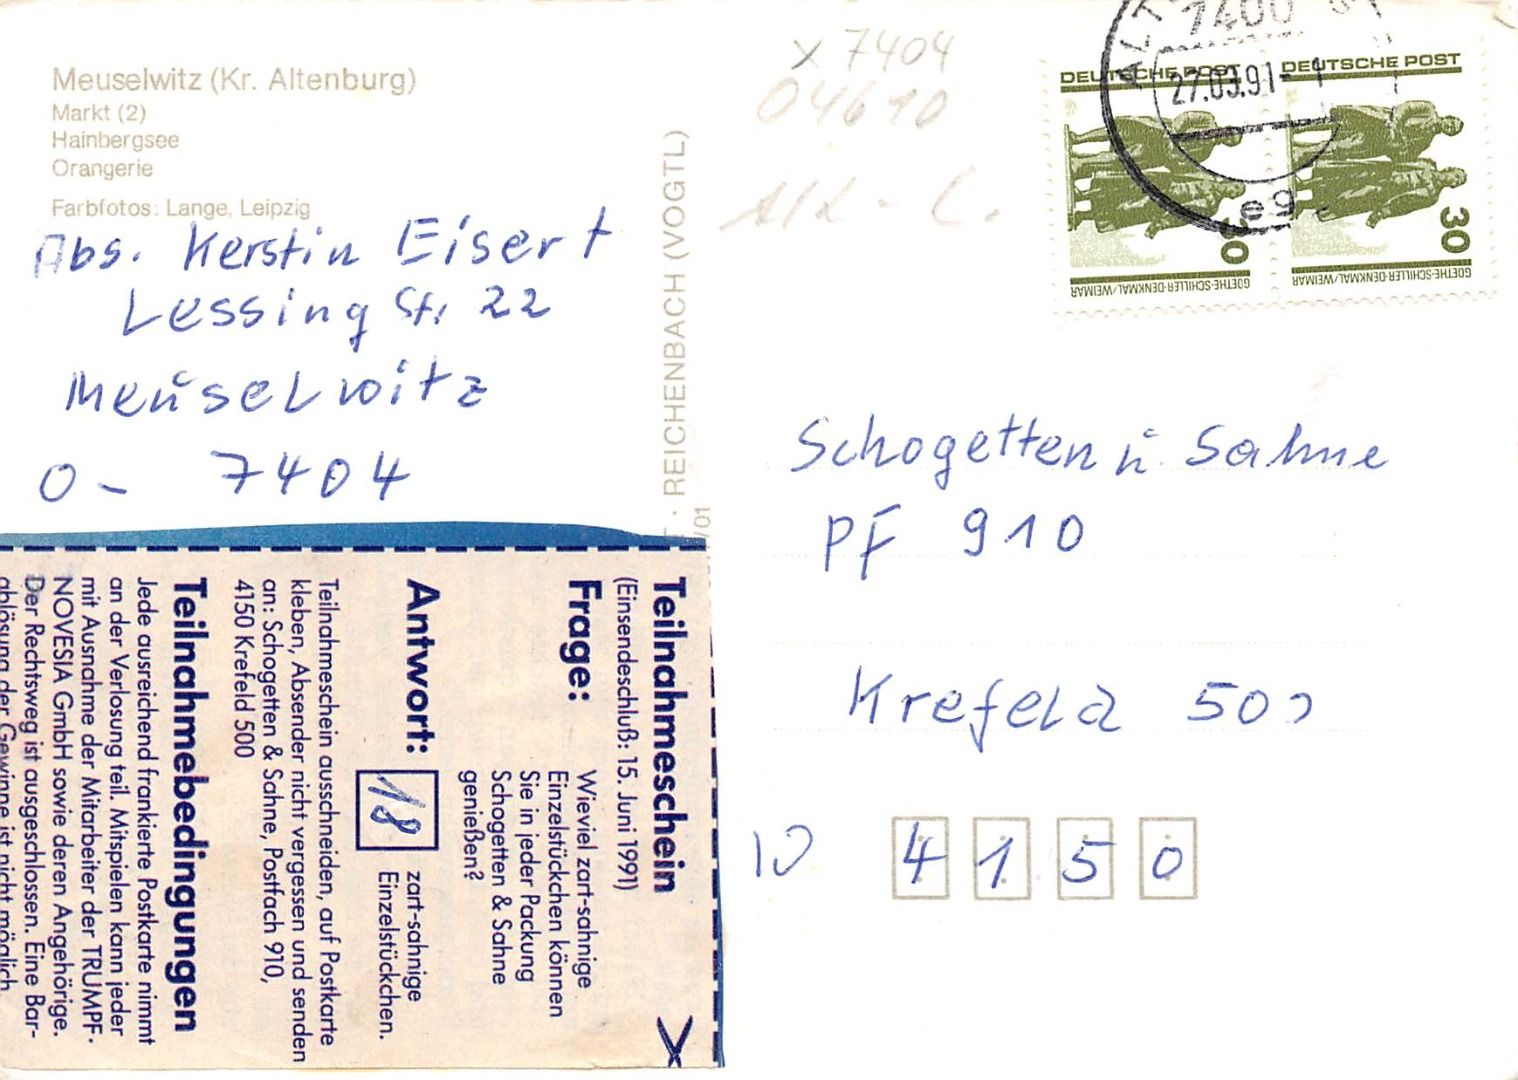 Meuselwitz (Kr. Altenburg)
Markt (2)
Hainbergsee
Orangerie
Farbfotos: Lange, Leipzig
Abs. Kerstin Eisert
Lessing Str. 22
Meuselwitz
O - 7404
REICHENBACH (VOGTL)
x 7404
04610
DEUTSCHE POST
30
GOETHE-SCHILLER-DENKMAL/WEIMAR
DEUTSCHE POST
30
GOETHE-SCHILLER-DENKMAL/WEIMAR
7400
27.03.91
eg
Schogetten u Sahne
PF 910
Krefeld 500
W
4150
Teilnahmeschein
(Einsendeschluß: 15. Juni 1991)
Frage:
Wieviel zart-sahnige
Einzelstückchen können
Sie in jeder Packung
Schogetten & Sahne
genießen?
Antwort:
18
zart-sahnige
Einzelstückchen.
Teilnahmeschein ausschneiden, auf Postkarte
kleben, Absender nicht vergessen und senden
an: Schogetten & Sahne, Postfach 910,
4150 Krefeld 500
Teilnahmebedingungen
Jede ausreichend frankierte Postkarte nimmt
an der Verlosung teil. Mitspielen kann jeder
mit Ausnahme der Mitarbeiter der TRUMPF-
NOVESIA GmbH sowie deren Angehörige.
Der Rechtsweg ist ausgeschlossen. Eine Bar-
ablösung der Gewinne ist nicht möglich.